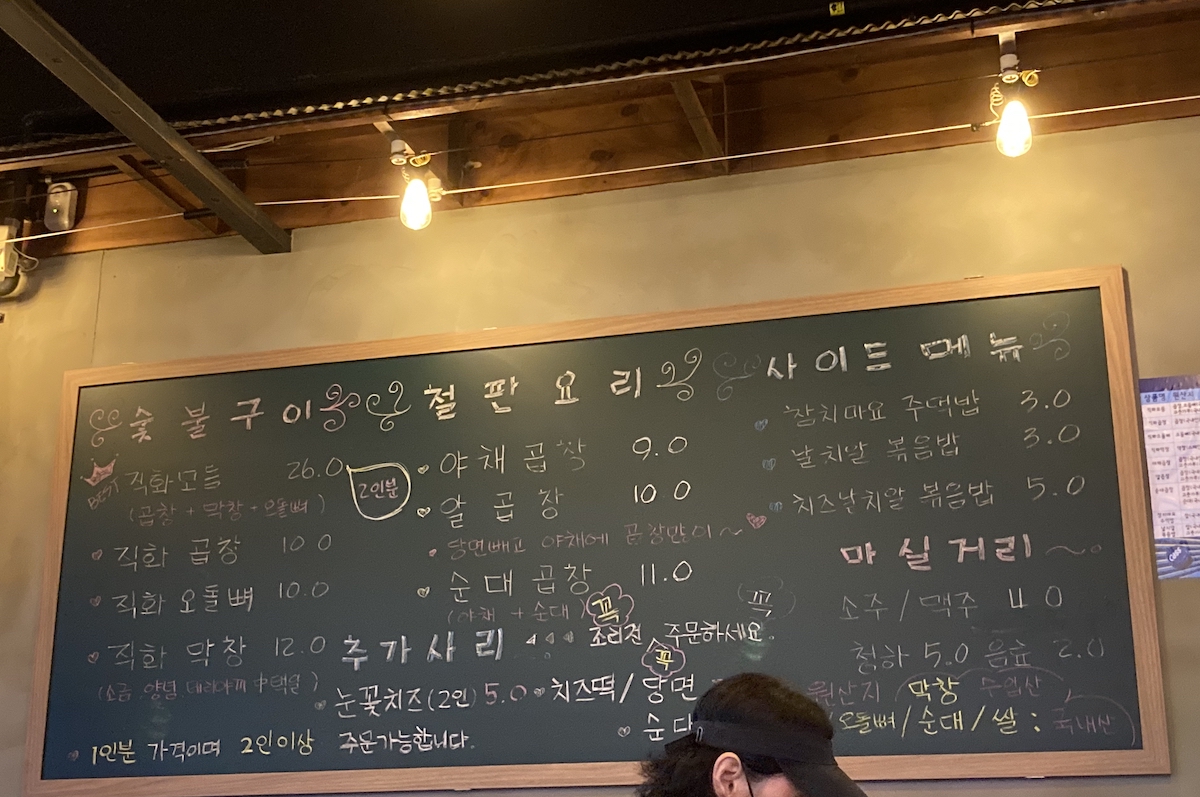 숯불구이
BEST 직화모듬 26.0 2인분
(곱창+막창+오돌뼈)
직화 곱창 10.0
직화 오돌뼈 10.0
직화 막창 12.0
(소금, 양념, 데리야끼 中택일)
1인분 가격이며 2인이상 주문가능합니다.
철판요리
야채 곱창 9.0
알 곱창 10.0
당면빼고 야채에 곱창만이~
순대 곱창 11.0
(야채+순대)
추가사리 조리전 꼭 주문하세요.
눈꽃치즈(2인) 5.0
치즈떡/당면
사이드메뉴
참치마요 주먹밥 3.0
날치알 볶음밥 3.0
치즈날치알 볶음밥 5.0
마실거리~
소주/맥주 4.0
청하 5.0 음료 2.0
원산지 막창 수입산
오돌뼈/순대/쌀: 국내산